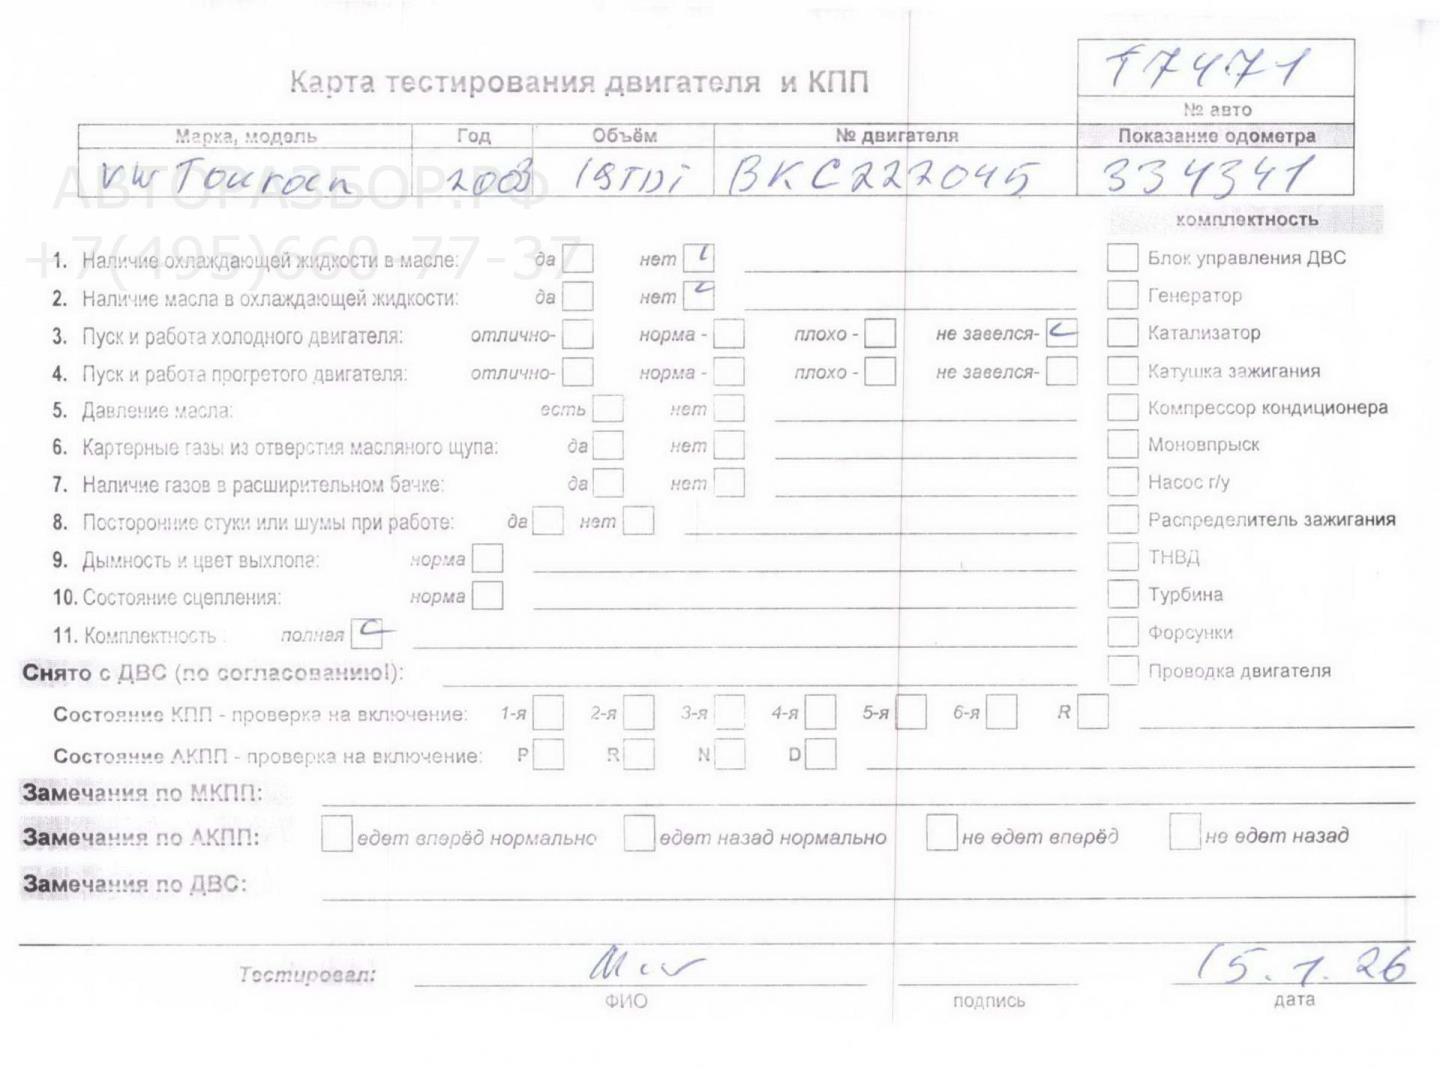 т7471
Карта тестирования двигателя и КПП
№ авто
Марка, модель Год Объём № двигателя Показание одометра
VW Touran 2003 19TDi BKC222045 334341
АВТОРАЗБОР.РФ
+7(495)660-77-37
комплектность
1. Наличие охлаждающей жидкости в масле: да нет Блок управления ДВС
2. Наличие масла в охлаждающей жидкости: да нет Генератор
3. Пуск и работа холодного двигателя: отлично- норма - плохо - не завелся- Катализатор
4. Пуск и работа прогретого двигателя: отлично- норма - плохо - не завелся- Катушка зажигания
5. Давление масла: есть нет Компрессор кондиционера
6. Картерные газы из отверстия масляного щупа: да нет Моновпрыск
7. Наличие газов в расширительном бачке: да нет Насос г/у
8. Посторонние стуки или шумы при работе: да нет Распределитель зажигания
9. Дымность и цвет выхлопа: норма ТНВД
10. Состояние сцепления: норма Турбина
11. Комплектность : полная Форсунки
Снято с ДВС (по согласованию!): Проводка двигателя
Состояние КПП - проверка на включение: 1-я 2-я 3-я 4-я 5-я 6-я R
Состояние АКПП - проверка на включение: P R N D
Замечания по МКПП:
Замечания по АКПП: едет вперёд нормально едет назад нормально не едет вперёд не едет назад
Замечания по ДВС:
Тестировал: 15.1.26
ФИО подпись дата